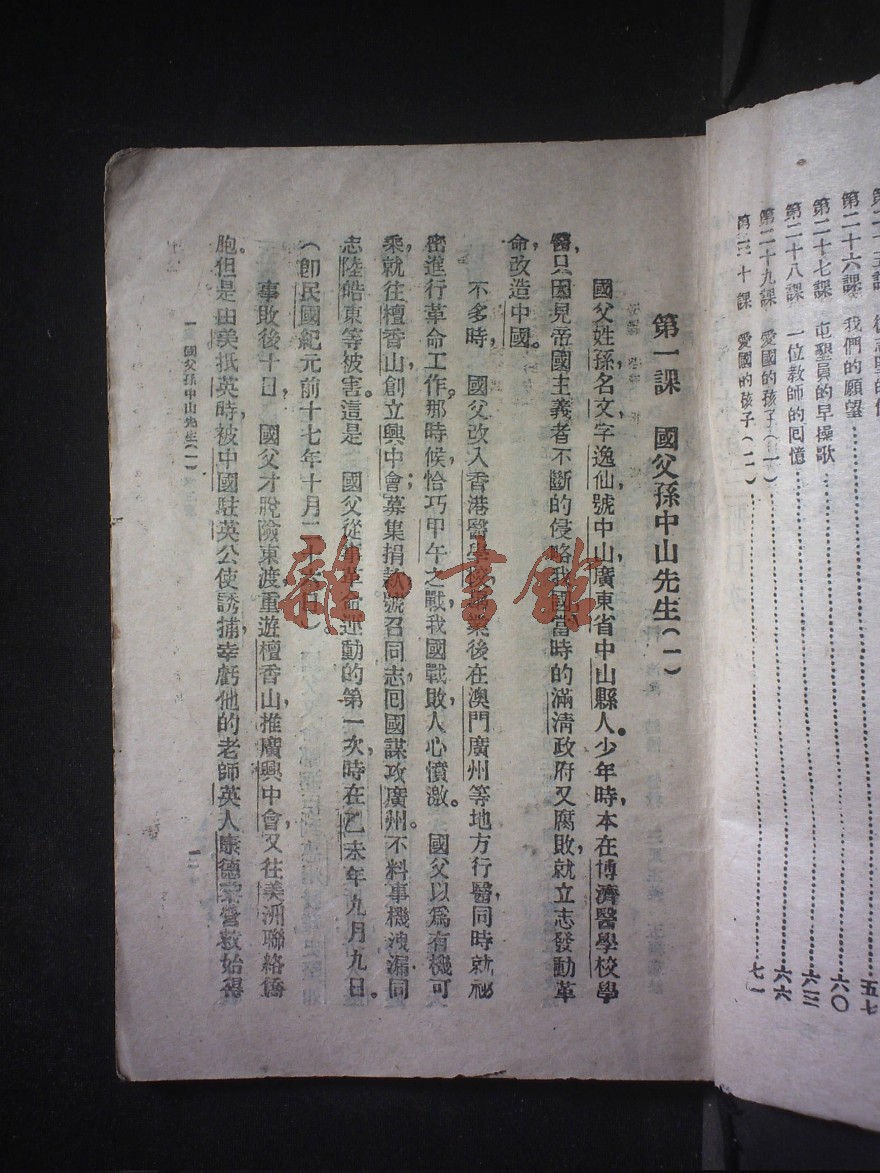 第二十六課 我們的願望 六〇
第二十七課 屯墾員的早操歌 六三
第二十八課 一位教師的回憶 六六
第二十九課 愛國的孩子(一) 七一
第三十課 愛國的孩子(二)
五七
第一課 國父孫中山先生(一)
國父姓孫,名文,字逸仙,號中山,廣東省中山縣人。少年時,本在博濟醫學校學
醫,只因見帝國主義者不斷的侵略我國,當時的滿清政府又腐敗,就立志發動革
命,改造中國。
不多時,國父改入香港醫學校,畢業後在澳門廣州等地方行醫,同時就祕
密進行革命工作。那時候恰巧甲午之戰,我國戰敗,人心憤激。國父以爲有機可
乘,就往檀香山,創立興中會;募集捐款,號召同志回國謀攻廣州。不料事機洩漏,同
志陸皓東等被害。這是 國父從事革命運動的第一次,時在乙未年九月九日。
(卽民國紀元前十七年十月二十六日)。
事敗後十日,國父才脫險東渡,重遊檀香山,推廣興中會,又往美洲聯絡僑
胞。但是由美抵英時,被中國駐英公使誘捕,幸虧他的老師英人康德黎營救,始得
一 國父孫中山先生(一)
一
雜·書館